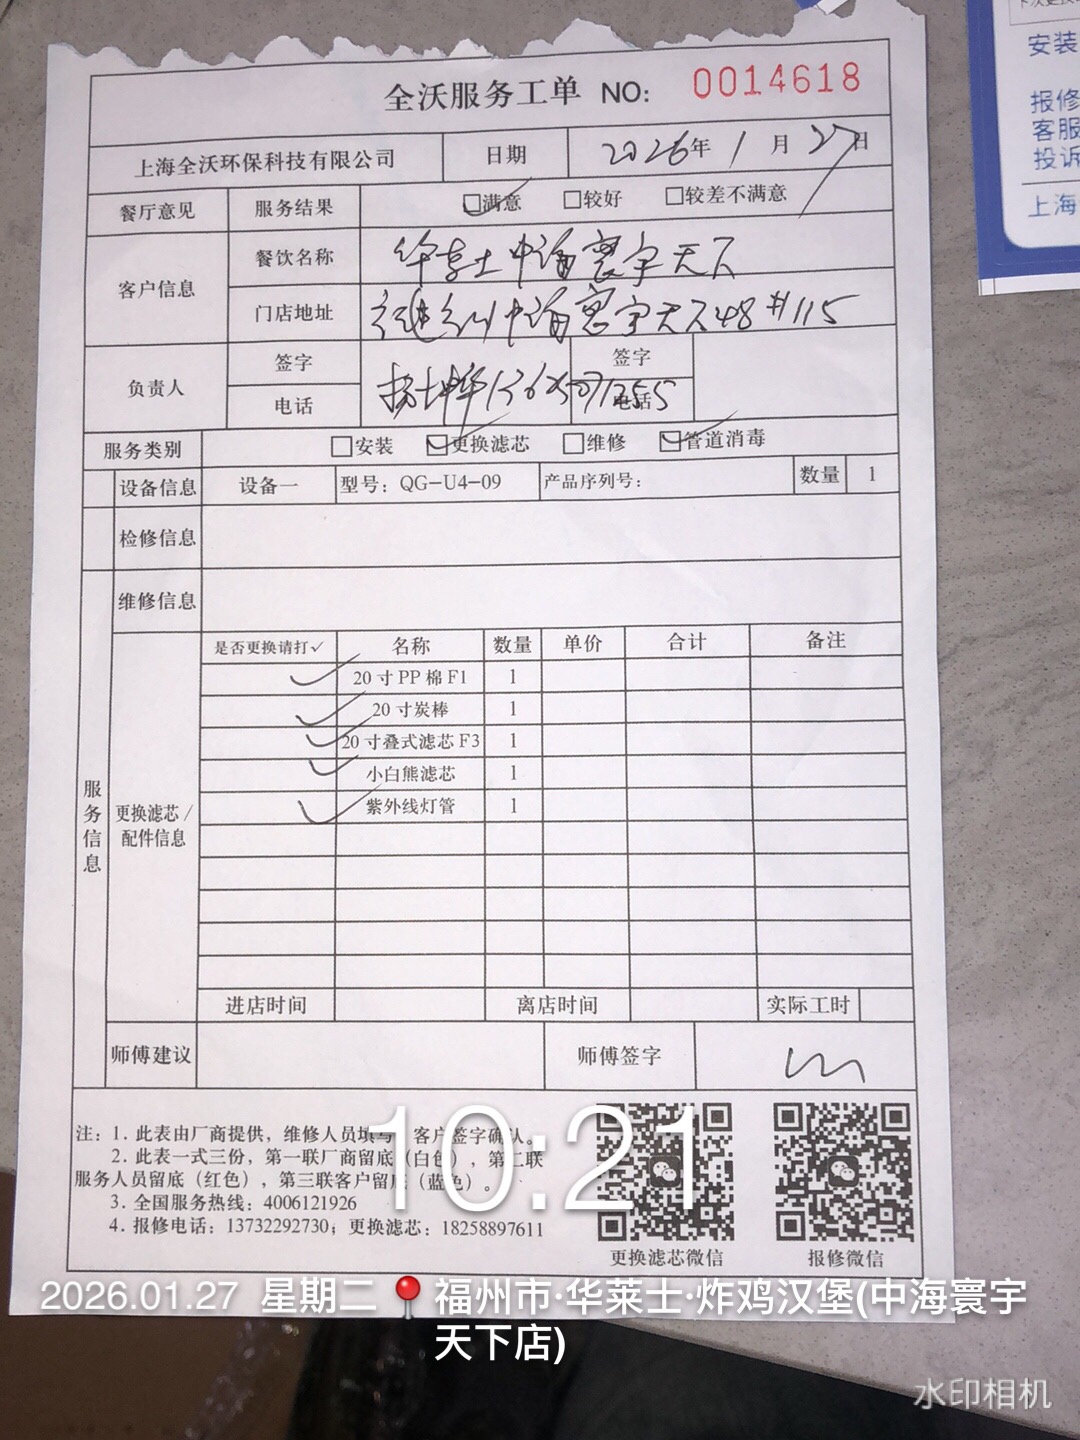 全沃服务工单 NO: 0014618
上海全沃环保科技有限公司 日期 2026年1月27日
餐厅意见 服务结果 ☑满意 □较好 □较差不满意
客户信息 餐饮名称 华莱士中海寰宇天下
门店地址 中海寰宇天下48#115
负责人 签字 签字
电话 电话
服务类别 □安装 ☑更换滤芯 □维修 ☑管道消毒
设备信息 设备一 型号：QG-U4-09 产品序列号： 数量 1
检修信息
维修信息
服务信息
更换滤芯/配件信息
是否更换请打✓ 名称 数量 单价 合计 备注
✓ 20寸PP棉F1 1
✓ 20寸炭棒 1
✓ 20寸叠式滤芯F3 1
✓ 小白熊滤芯 1
✓ 紫外线灯管 1
进店时间 离店时间 实际工时
师傅建议 师傅签字
注：1. 此表由厂商提供，维修人员填写，客户签字确认。
2. 此表一式三份，第一联厂商留底（白色），第二联
服务人员留底（红色），第三联客户留底（蓝色）。
3. 全国服务热线：4006121926
4. 报修电话：13732292730；更换滤芯：18258897611
更换滤芯微信 报修微信
10:21
2026.01.27 星期二 福州市·华莱士·炸鸡汉堡(中海寰宇
天下店)
水印相机
安装
报修
客服
投诉
上海